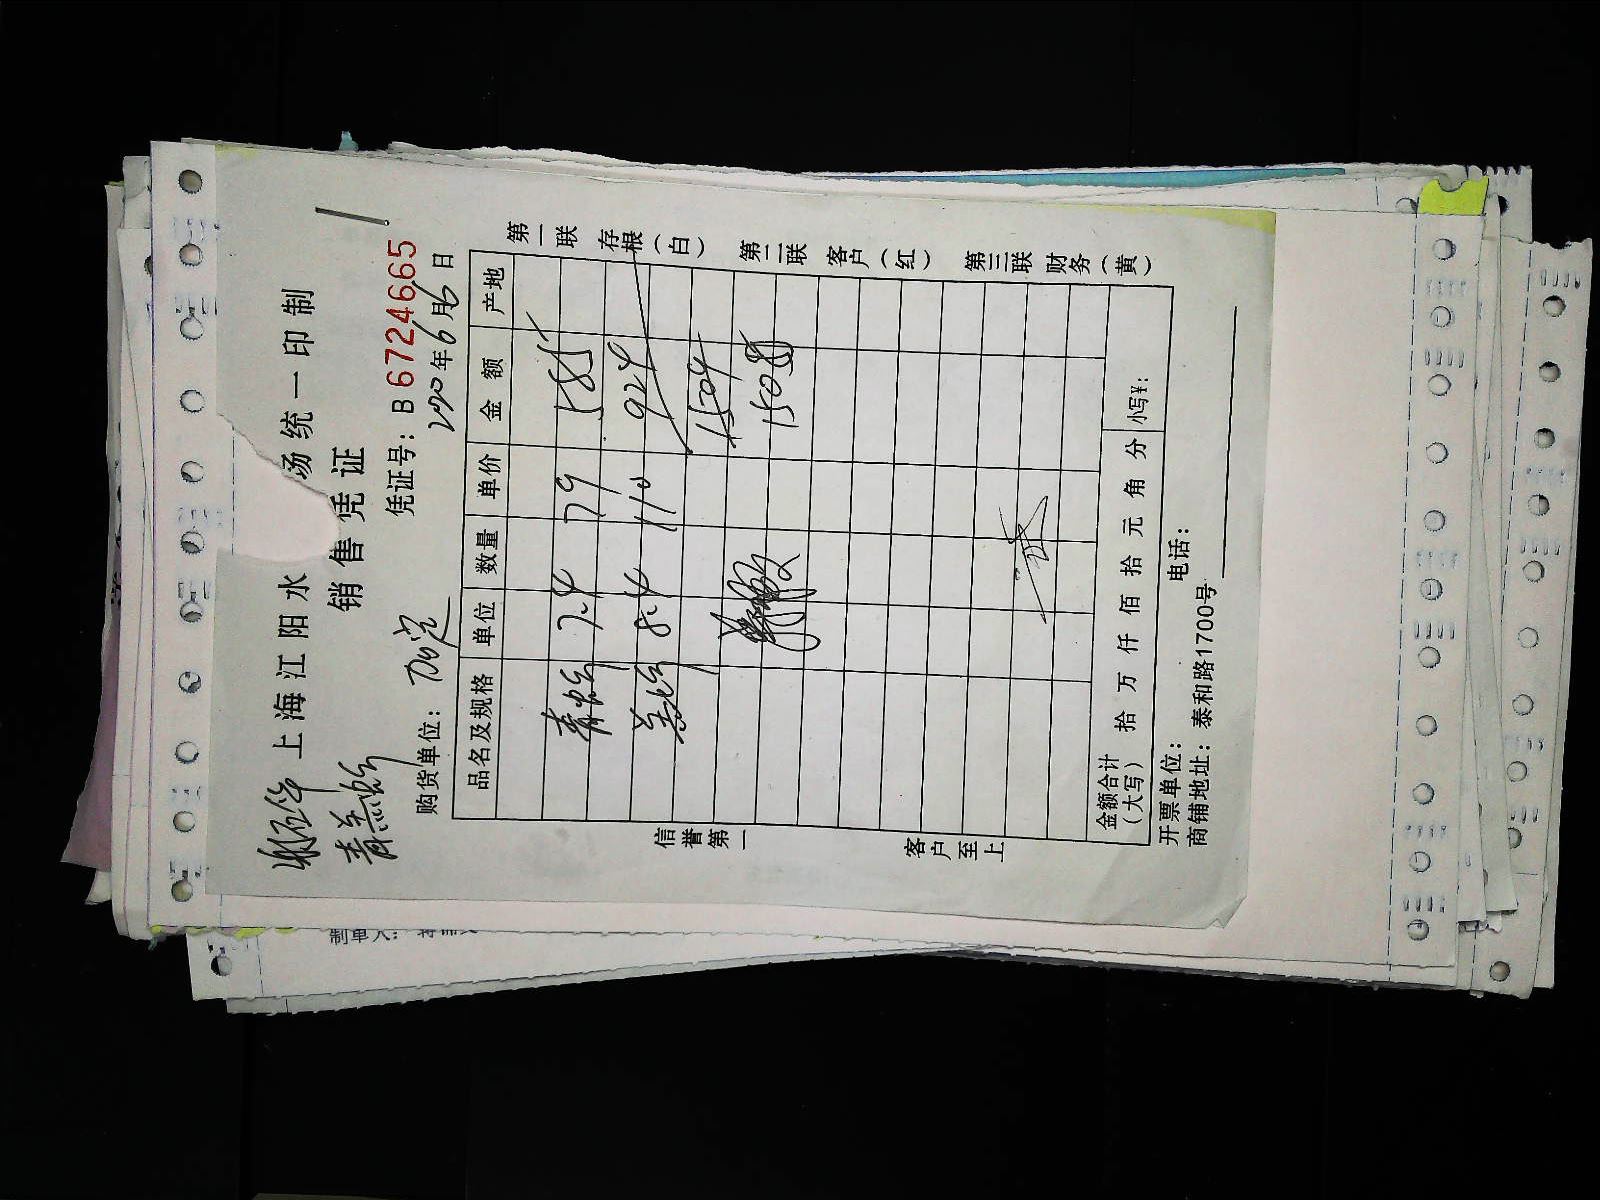 上海江阳水 场统一印制
销售凭证
凭证号：B 6724665
年6月6日
购货单位：
品名及规格 单位 数量 单价 金额 产地
青蟹 7.4 79 585
羔蟹 8.4 110 924
1504
150
金额合计（大写） 拾 万 仟 佰 拾 元 角 分 小写¥：
开票单位： 电话：
商铺地址：泰和路1700号
信誉第一 客户至上
第一联 存根（白） 第二联 客户（红） 第三联 财务（黄）
制单人：